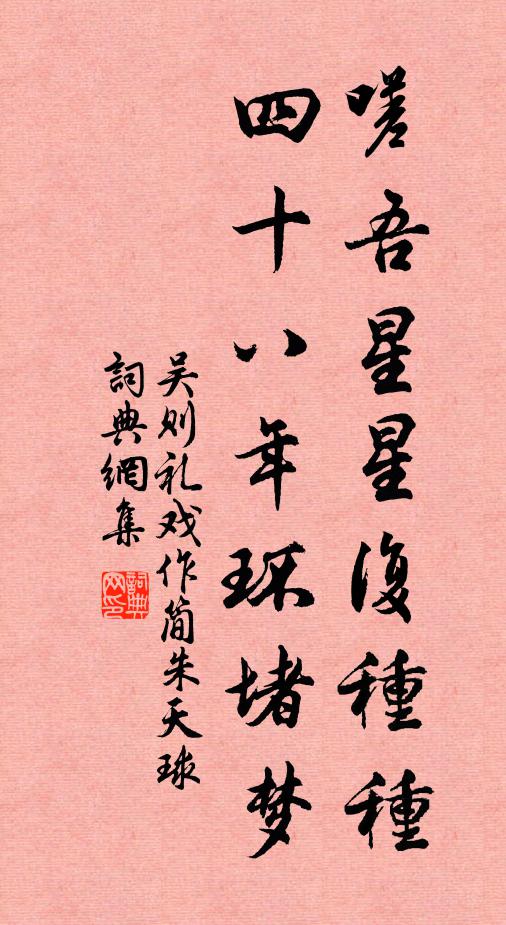 嗟吾星星復種種
四十八年环堵梦
吴则礼戏作简朱天球
詞典網集
詞典网印